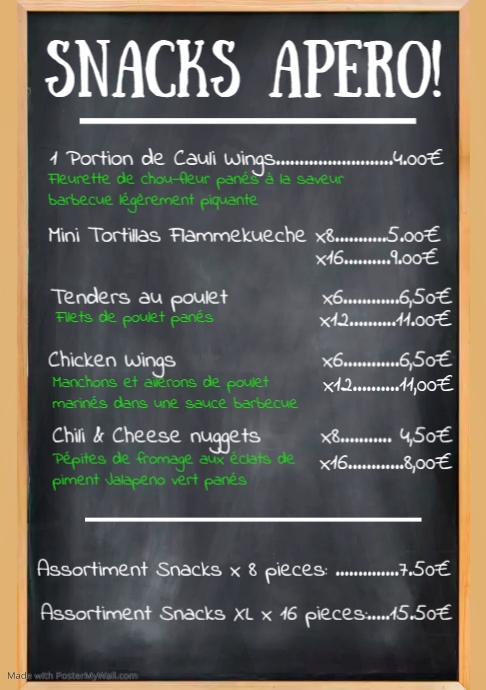 SNACKS APERO!
1 Portion de Cauli Wings............................4.00€
Fleurette de chou-fleur panés à la saveur
barbecue légérement piquante
Mini Tortillas Flammekueche x8............5.00€
x16...........9.00€
Tenders au poulet x6............6,50€
Filets de poulet panés x12...........11.00€
Chicken Wings x6............6,50€
Manchons et ailerons de poulet x12...........11,00€
marinés dans une sauce barbecue
Chili & Cheese nuggets x8........... 4,50€
Pépites de fromage aux éclats de x16.............8,00€
piment Jalapeno vert panés
Assortiment Snacks x 8 pieces: ..............7.50€
Assortiment Snacks XL x 16 pieces:.....15.50€
Made with PosterMyWall.com